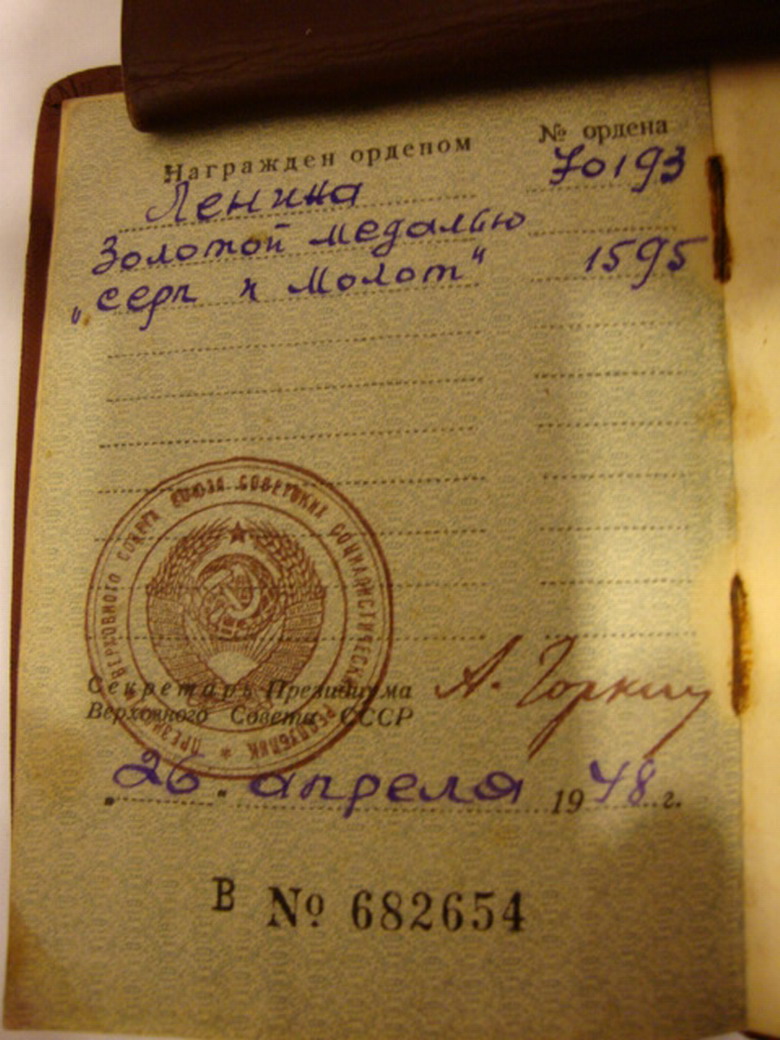 Награжден орденом № ордена
Ленина 70193
Золотой медалью
„Серп и Молот“ 1595
ПРЕЗИДИУМ ВЕРХОВНОГО СОВЕТА СОЮЗА СОВЕТСКИХ СОЦИАЛИСТИЧЕСКИХ РЕСПУБЛИК *
Секретарь Президиума
Верховного Совета СССР
А. Горкин
„26“ апреля 1948 г.
В № 682654